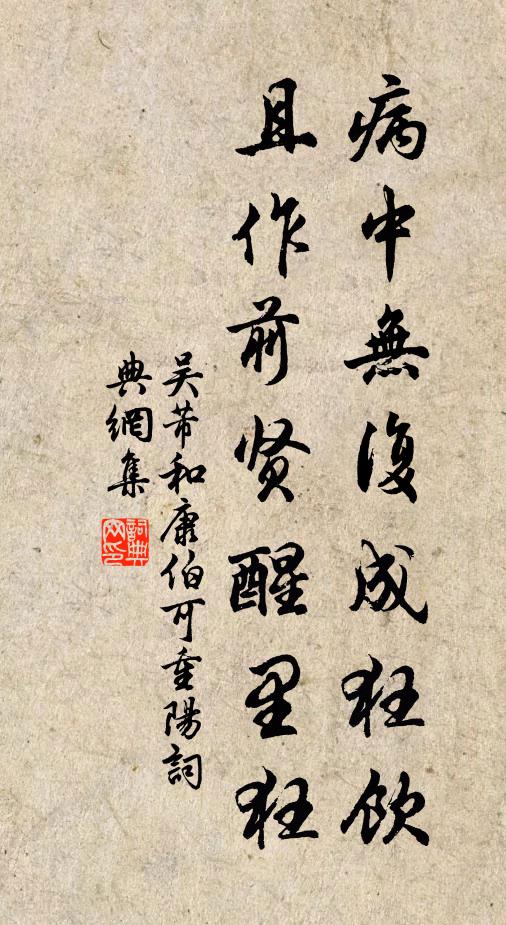 病中無復成狂飲
且作前贤醒里狂
吴芾和康伯可重陽詞
典網集
詞典网印